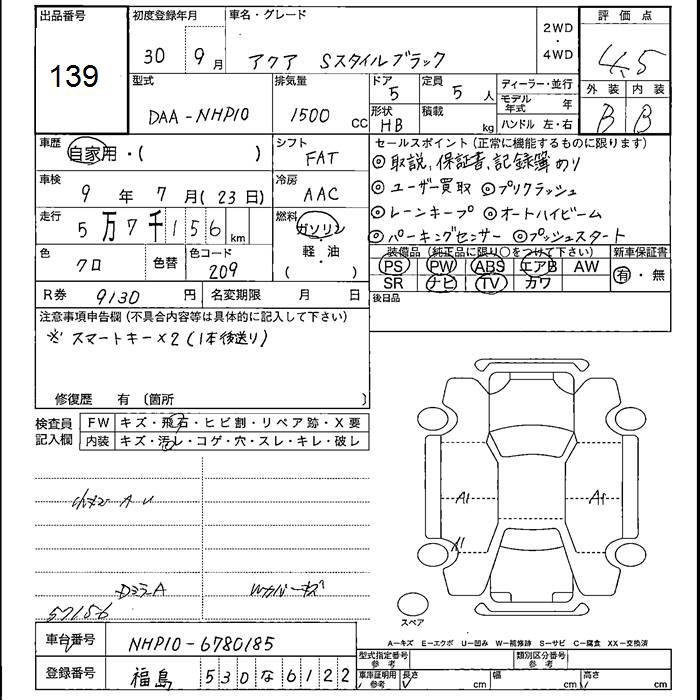 出品番号 初度登録年月 車名・グレード 2WD・4WD 評価点
139 30 9月 アクア Sスタイルブラック 4.5
型式 排気量 ドア 5 定員 5人 ディーラー・並行 外装 内装
DAA-NHP10 1500 CC 形状 HB 積載 kg モデル年式 年 B B
ハンドル 左・右
車歴 自家用・( ) シフト FAT セールスポイント(正常に機能するものに限ります)
◎取説,保証書,記録簿あり
車検 9年7月(23日) 冷房 AAC ◎ユーザー買取 ◎プリクラッシュ
◎レーンキープ ◎オートハイビーム
走行 5万7千156km 燃料 ガソリン・軽・油( ) ◎パーキングセンサー ◎プッシュスタート
色 クロ 色替 色コード 209 装備品(純正品に限り○をつけて下さい) 新車保証書
PS PW ABS エアB AW 有・無
SR ナビ TV カワ
R券 9130円 名変期限 月 日 後日品
注意事項申告欄(不具合内容等は具体的に記入して下さい)
※ スマートキー×2(1本後送り)
修復歴 有 〔箇所
検査員記入欄 FW キズ・飛石・ヒビ割・リペア跡・X要
内装 キズ・汚レ・コゲ・穴・スレ・キレ・破レ
A1 A1
57156
スペア
A-キズ E-エクボ U-凹み W-補修跡 S-サビ C-腐食 XX-交換済
車台番号 NHP10-6780185
型式指定番号 参考 類別区分番号 参考
登録番号 福島 530 な 6122
車庫証明用 参考 長さ cm 幅 cm 高さ cm